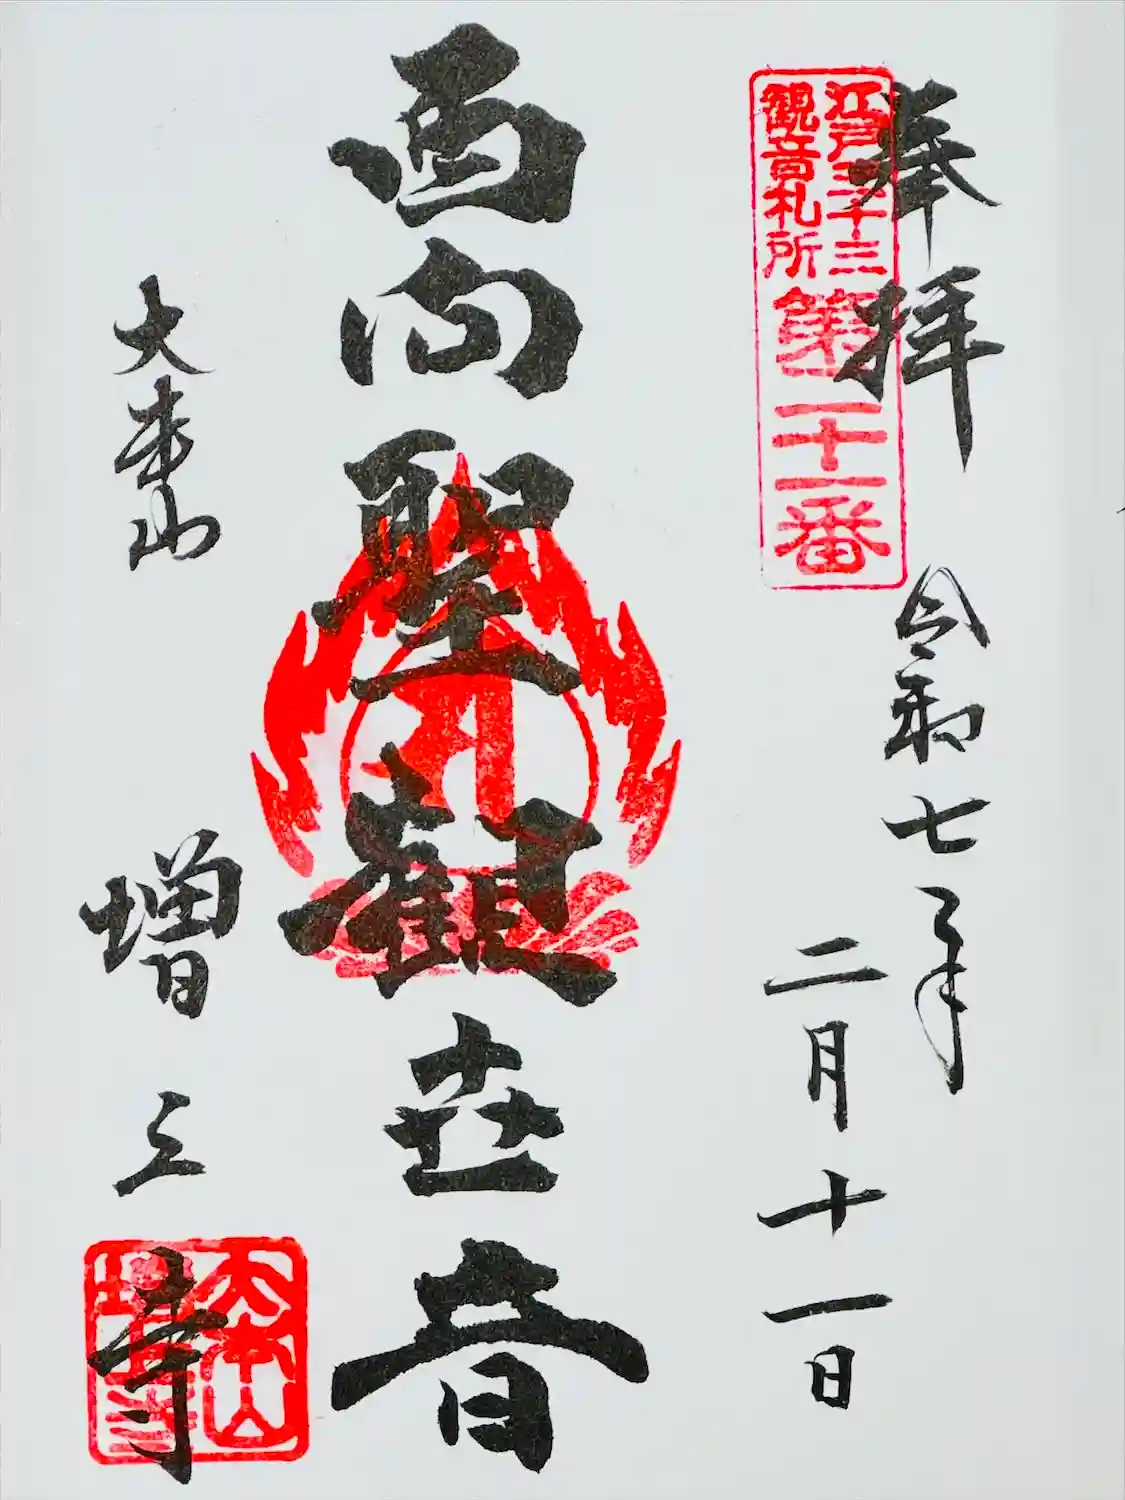 奉拝
江戸三十三
観音札所
第二十一番
令和七年
二月十一日
西向聖観世音
大本山
増上寺
大本山
増上寺